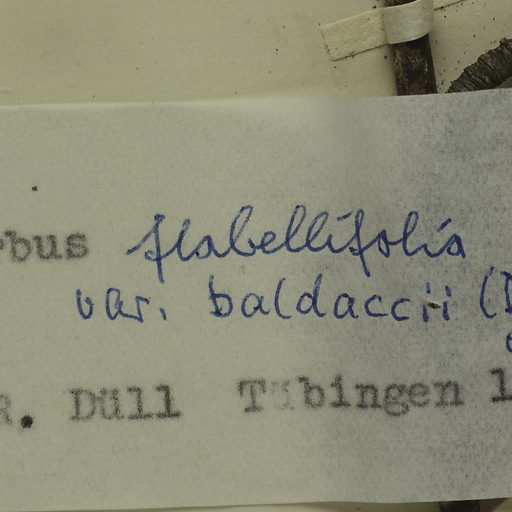 rbus flabellifolia
var. baldaccii (D
R. Düll Tübingen 1